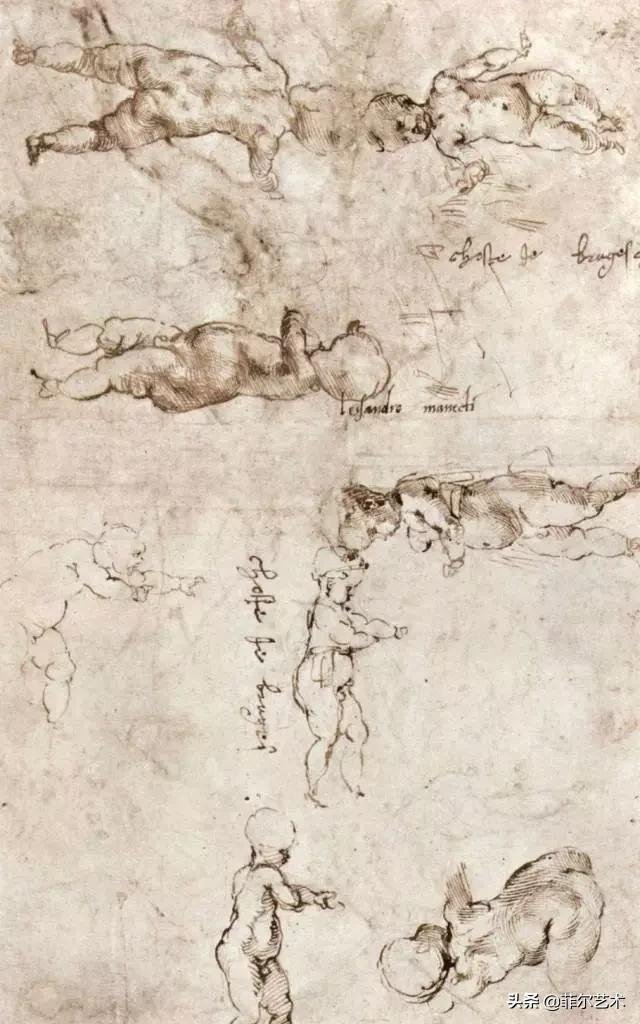 chosse de bruges
lesandro manecti
chosse de bruges
头条 @菲尔艺术